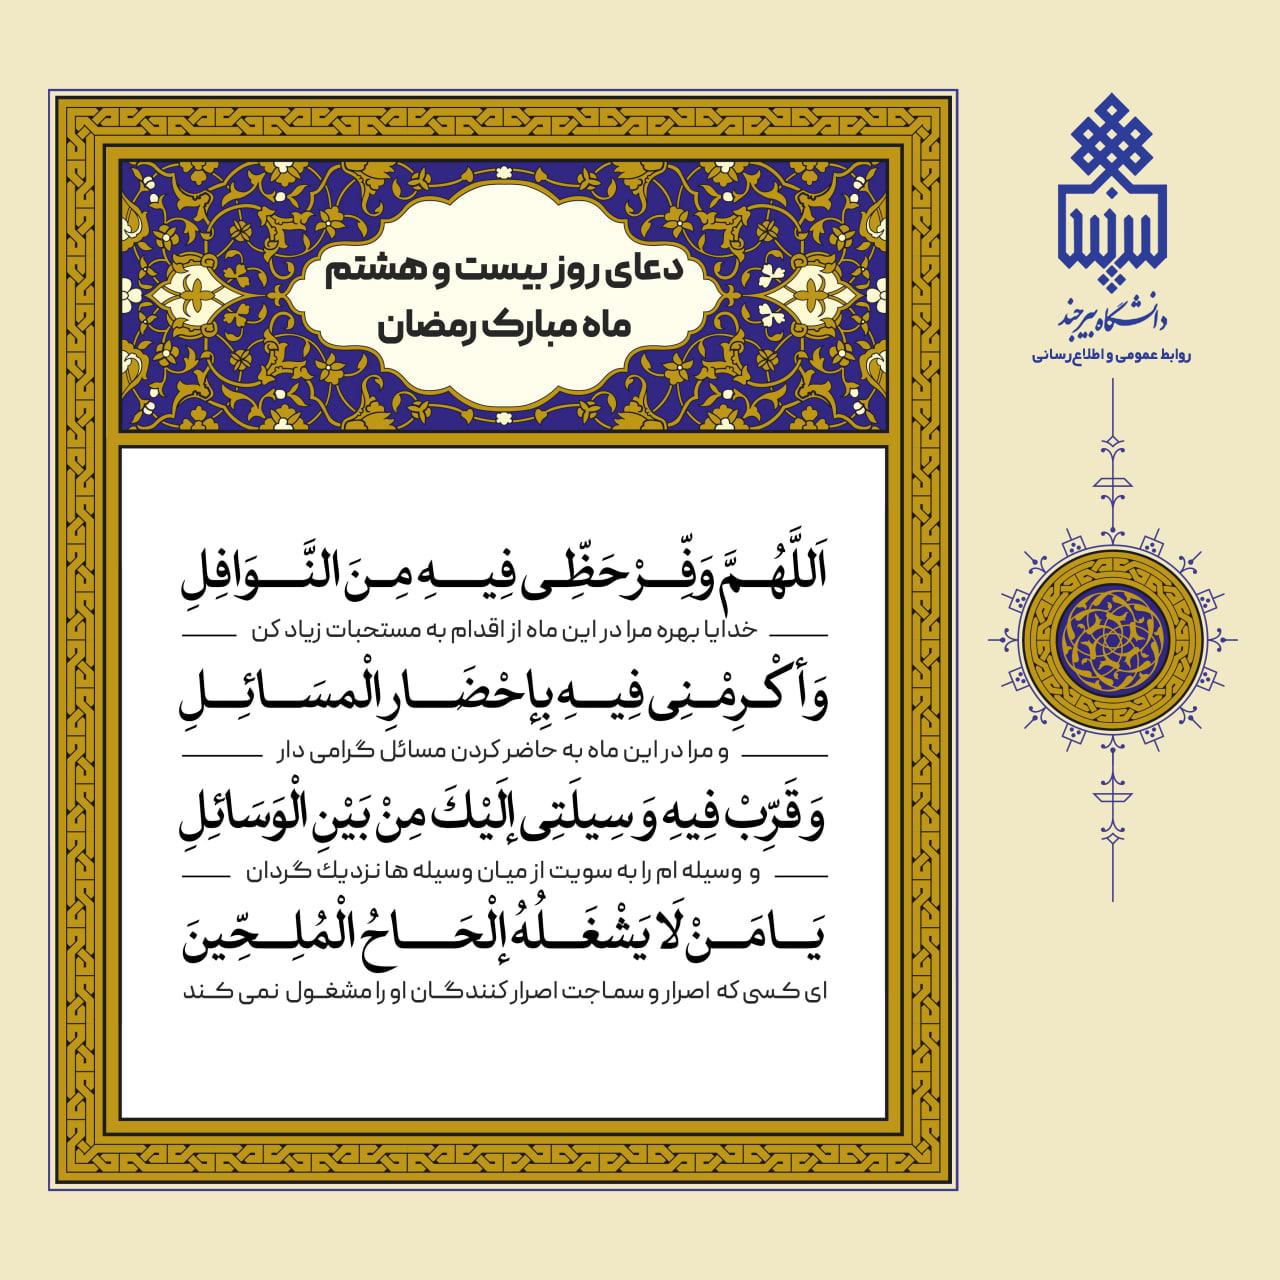 دعای روز بیست و هشتم
ماه مبارک رمضان
اَللَّهُمَّ وَفِّرْ حَظِّی فِیهِ مِنَ النَّوَافِلِ
خدایا بهره مرا در این ماه از اقدام به مستحبات زیاد کن
وَأکْرِمْنِی فِیهِ بِإحْضَارِ الْمسَائِلِ
و مرا در این ماه به حاضر کردن مسائل گرامی دار
وَ قَرِّبْ فِیهِ وَسِیلَتِی إلَیْكَ مِنْ بَیْنِ الْوَسَائِلِ
و وسیله ام را به سویت از میان وسیله ها نزدیك گردان
یَا مَنْ لَا یَشْغَلُهُ إلْحَاحُ الْمُلِحِّینَ
ای کسی که اصرار و سماجت اصرار کنندگان او را مشغول نمی کند
دانشگاه بیرجند
روابط عمومی و اطلاع‌رسانی